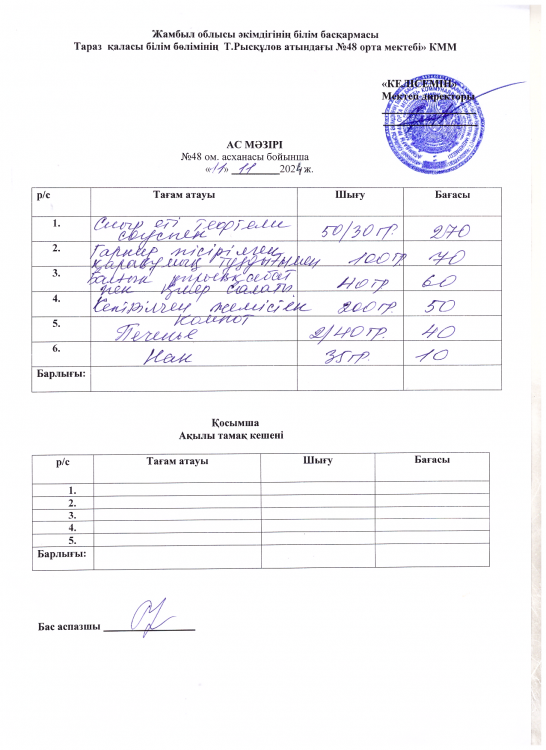 Жамбыл облысы әкімдігінің білім басқармасы
Тараз қаласы білім бөлімінің Т.Рысқұлов атындағы №48 орта мектебі» КММ
«КЕЛІСЕМІН»
Мектеп директоры
АС МӘЗІРІ
№48 ом. асханасы бойынша
«11» 11 2024 ж.
р/с Тағам атауы Шығу Бағасы
1. Сиыр еті тефтели соуспен 50/30 гр. 270
2. Гарнир пісірілген қарақұмық тұздығымен 100 гр 70
3. Балғын қырыққабат пен қияр салаты 40 гр 60
4. Кептірілген жемістен компот 200 гр. 50
5. Печенье 2/40 гр. 40
6. Нан 35 гр. 10
Барлығы:
Қосымша
Ақылы тамақ кешені
р/с Тағам атауы Шығу Бағасы
1.
2.
3.
4.
5.
Барлығы:
Бас аспазшы